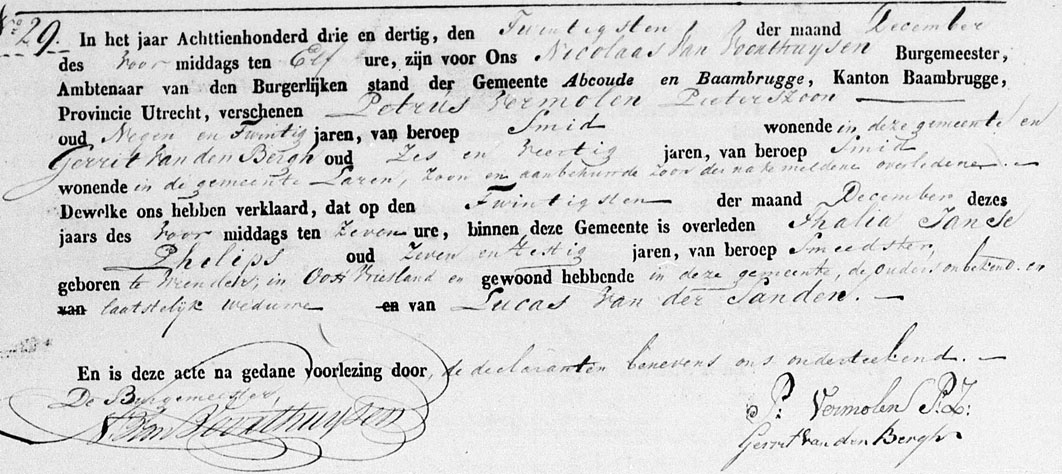 No 29. In het jaar Achttienhonderd drie en dertig, den Twintigsten der maand December
des voor middags ten Elf ure, zijn voor Ons Nicolaas Van Voorthuysen Burgemeester,
Ambtenaar van den Burgerlijken stand der Gemeente Abcoude en Baambrugge, Kanton Baambrugge,
Provincie Utrecht, verschenen Petrus Vermolen Pieterszoon
oud Negen en Twintig jaren, van beroep Smid wonende in deze gemeente en
Gerrit van den Bergh oud Zes en Veertig jaren, van beroep Smid
wonende in de gemeente Laren, zoon en aanbehuwde zoon der na te meldene overledene.
Dewelke ons hebben verklaard, dat op den Twintigsten der maand December dezes
jaars des voor middags ten Zeven ure, binnen deze Gemeente is overleden Thalia Janse
Phelips oud Zeven en Zestig jaren, van beroep Smedster,
geboren te in Oost Vriesland en gewoond hebbende in deze gemeente, de ouders onbekend en
van laatstelijk weduwe en van Lucas van der Sanden.
En is deze acte na gedane voorlezing door, de declaranten benevens ons onderteekend.
De Burgemeester,
N. Van Voorthuysen
P: Vermolen P.Z:
Gerrit van den Bergh